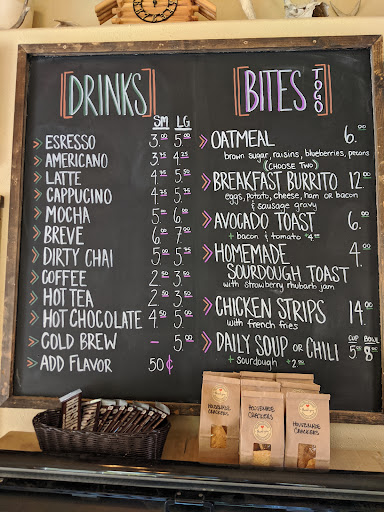 [DRINKS]
SM LG
> ESRESSO 3.00 5.00
> AMERICANO 3.75 4.25
> LATTE 4.95 5.50
> CAPPUCINO 4.75 5.75
> MOCHA 5.00 6.00
> BREVE 6.00 7.00
> DIRTY CHAI 5.00 5.95
> COFFEE 2.50 3.50
> HOT TEA 2.50 3.50
> HOT CHOCOLATE 4.50 5.00
> COLD BREW – 5.00
> ADD FLAVOR 50¢
[BITES TO GO]
> OATMEAL 6.00
brown sugar, raisins, blueberries, pecans
(CHOOSE TWO)
> BREAKFAST BURRITO 12.00
eggs, potato, cheese, ham or bacon
& sausage gravy
> AVOCADO TOAST 6.00
+ bacon & tomato $4.00
> HOMEMADE 4.00
SOURDOUGH TOAST
with strawberry rhubarb jam
> CHICKEN STRIPS 14.00
with french fries
CUP BOWL
> DAILY SOUP or CHILI 5.95 8.95
+ Sourdough +2.00
HOMEMADE
CRACKERS
HOMEMADE
CRACKERS
HOMEMADE
CRACKERS